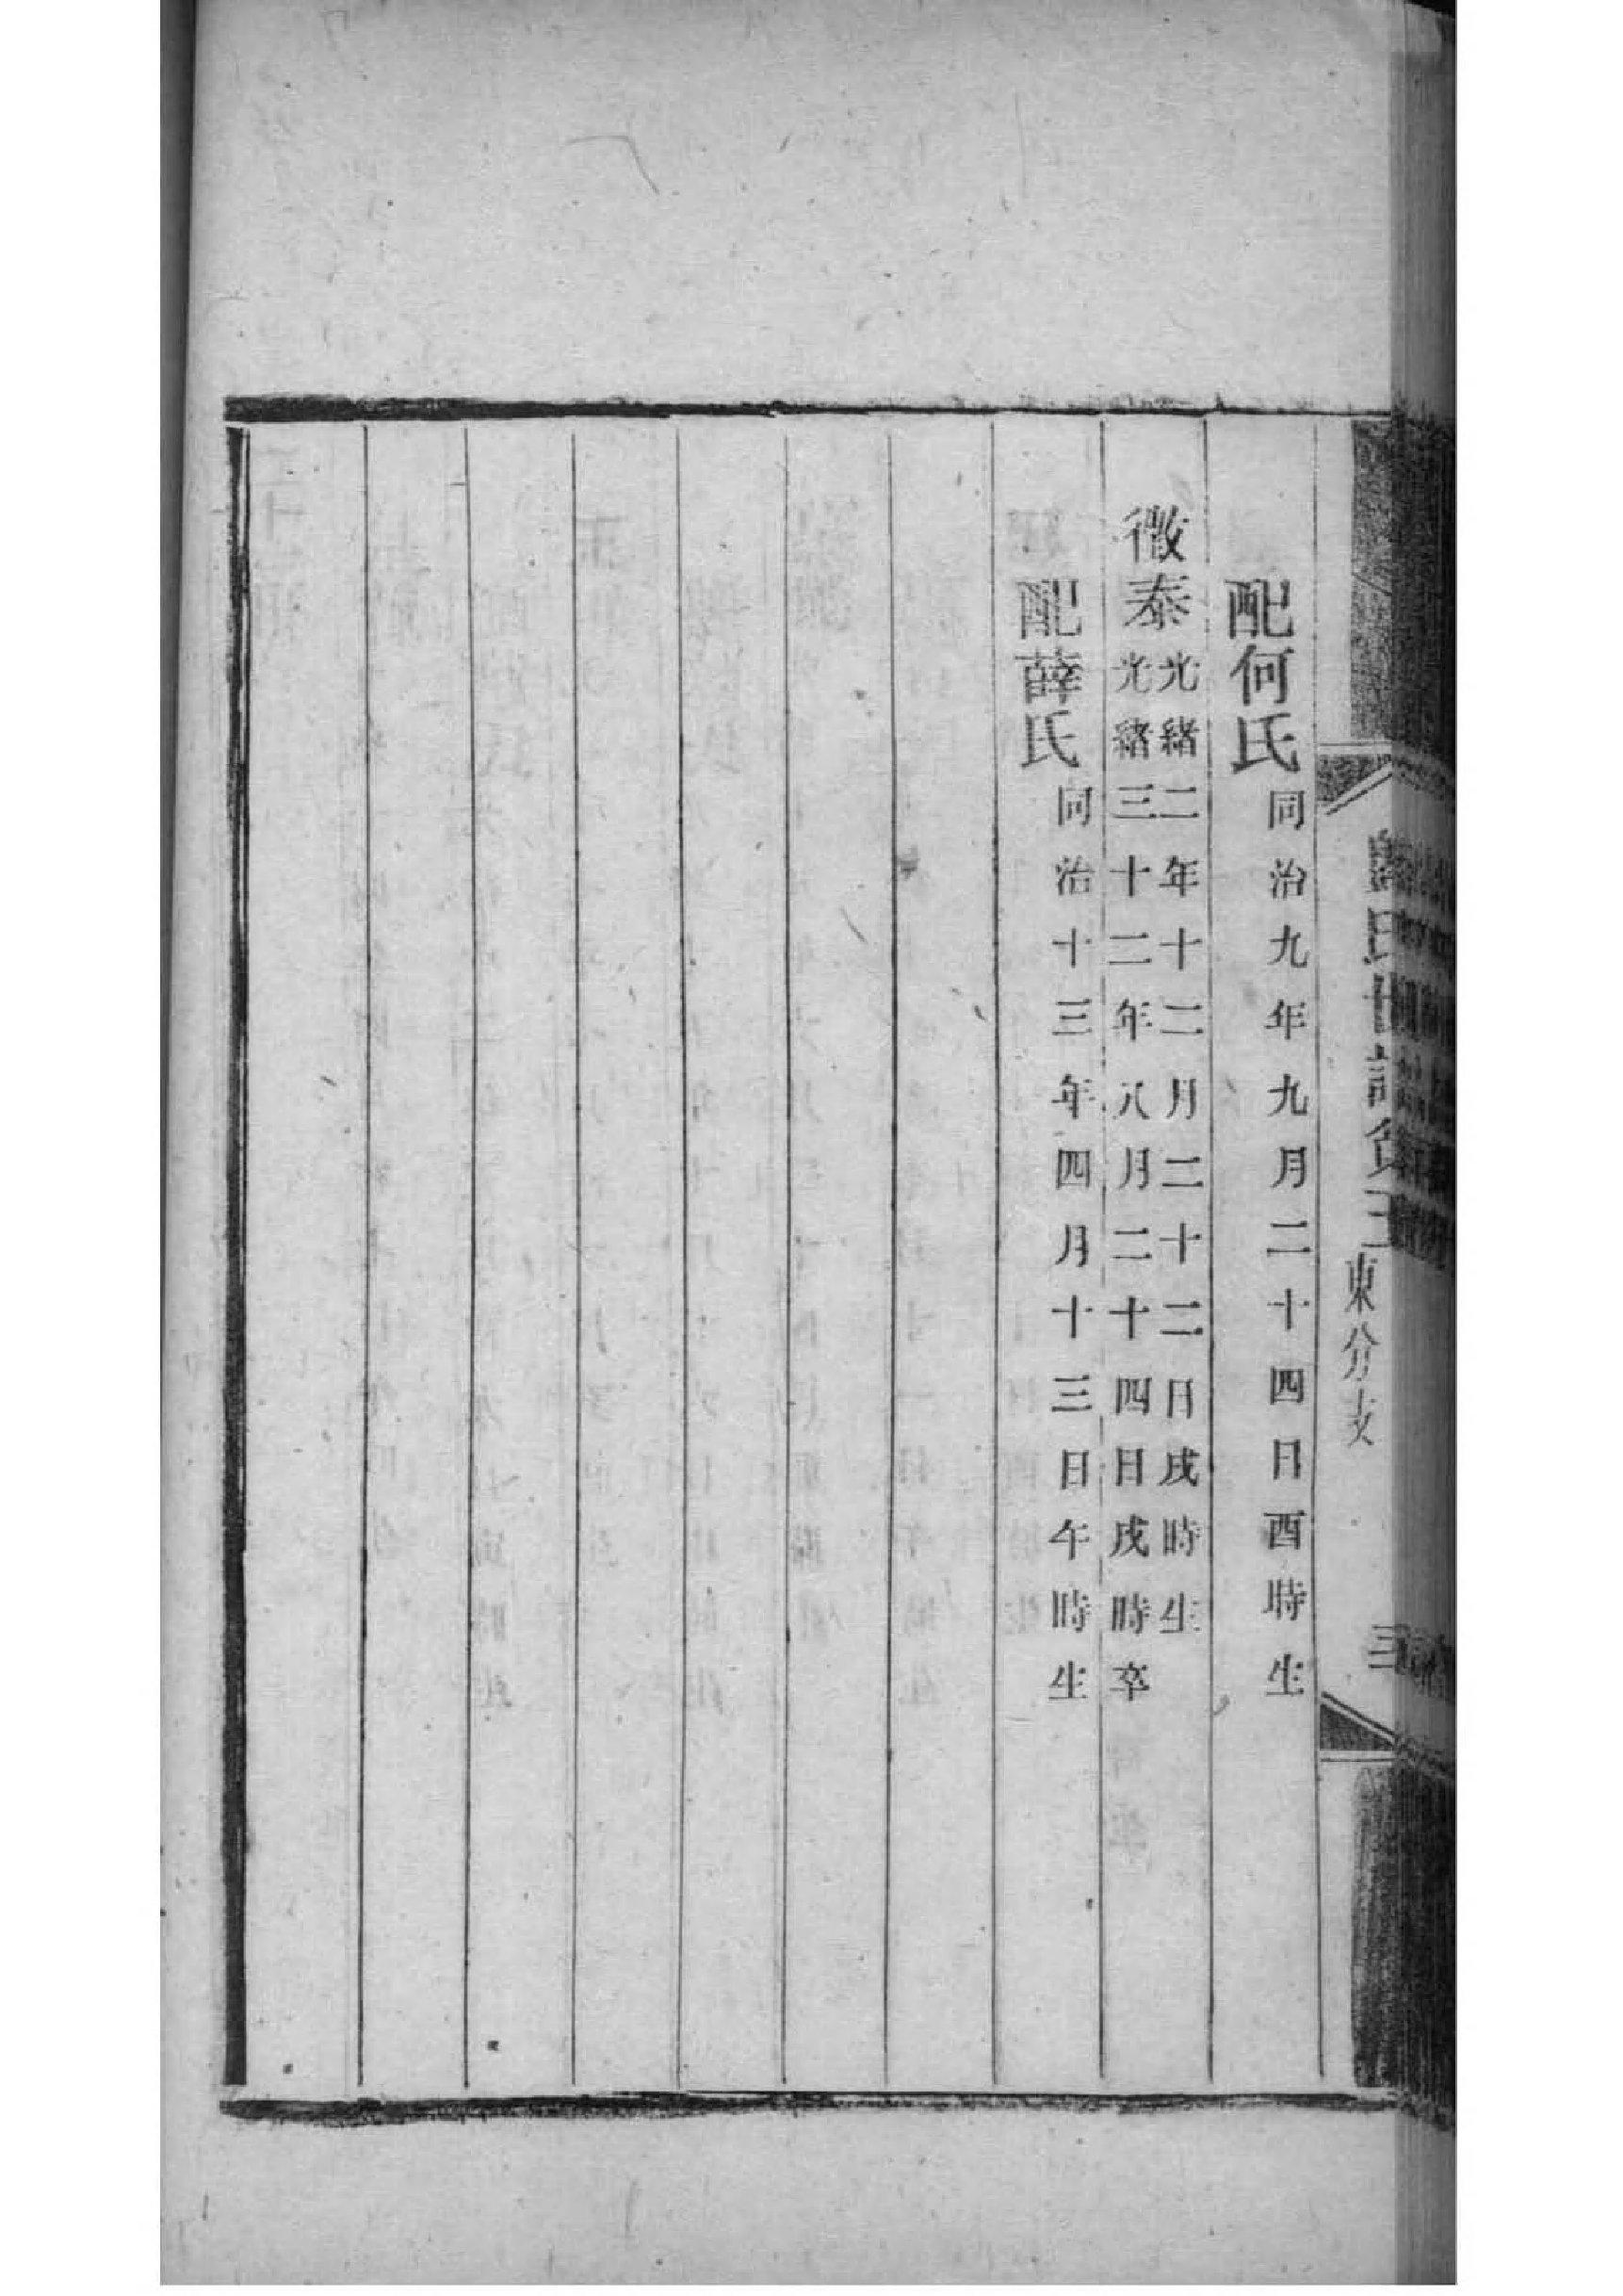 配何氏同治九年九月二十四日酉時生
徵泰光緒二年十二月二十二日戌時生
光緒三十二年八月二十四日戌時卒
配薛氏同治十三年四月十三日午時生
氏世譜
東分支
三